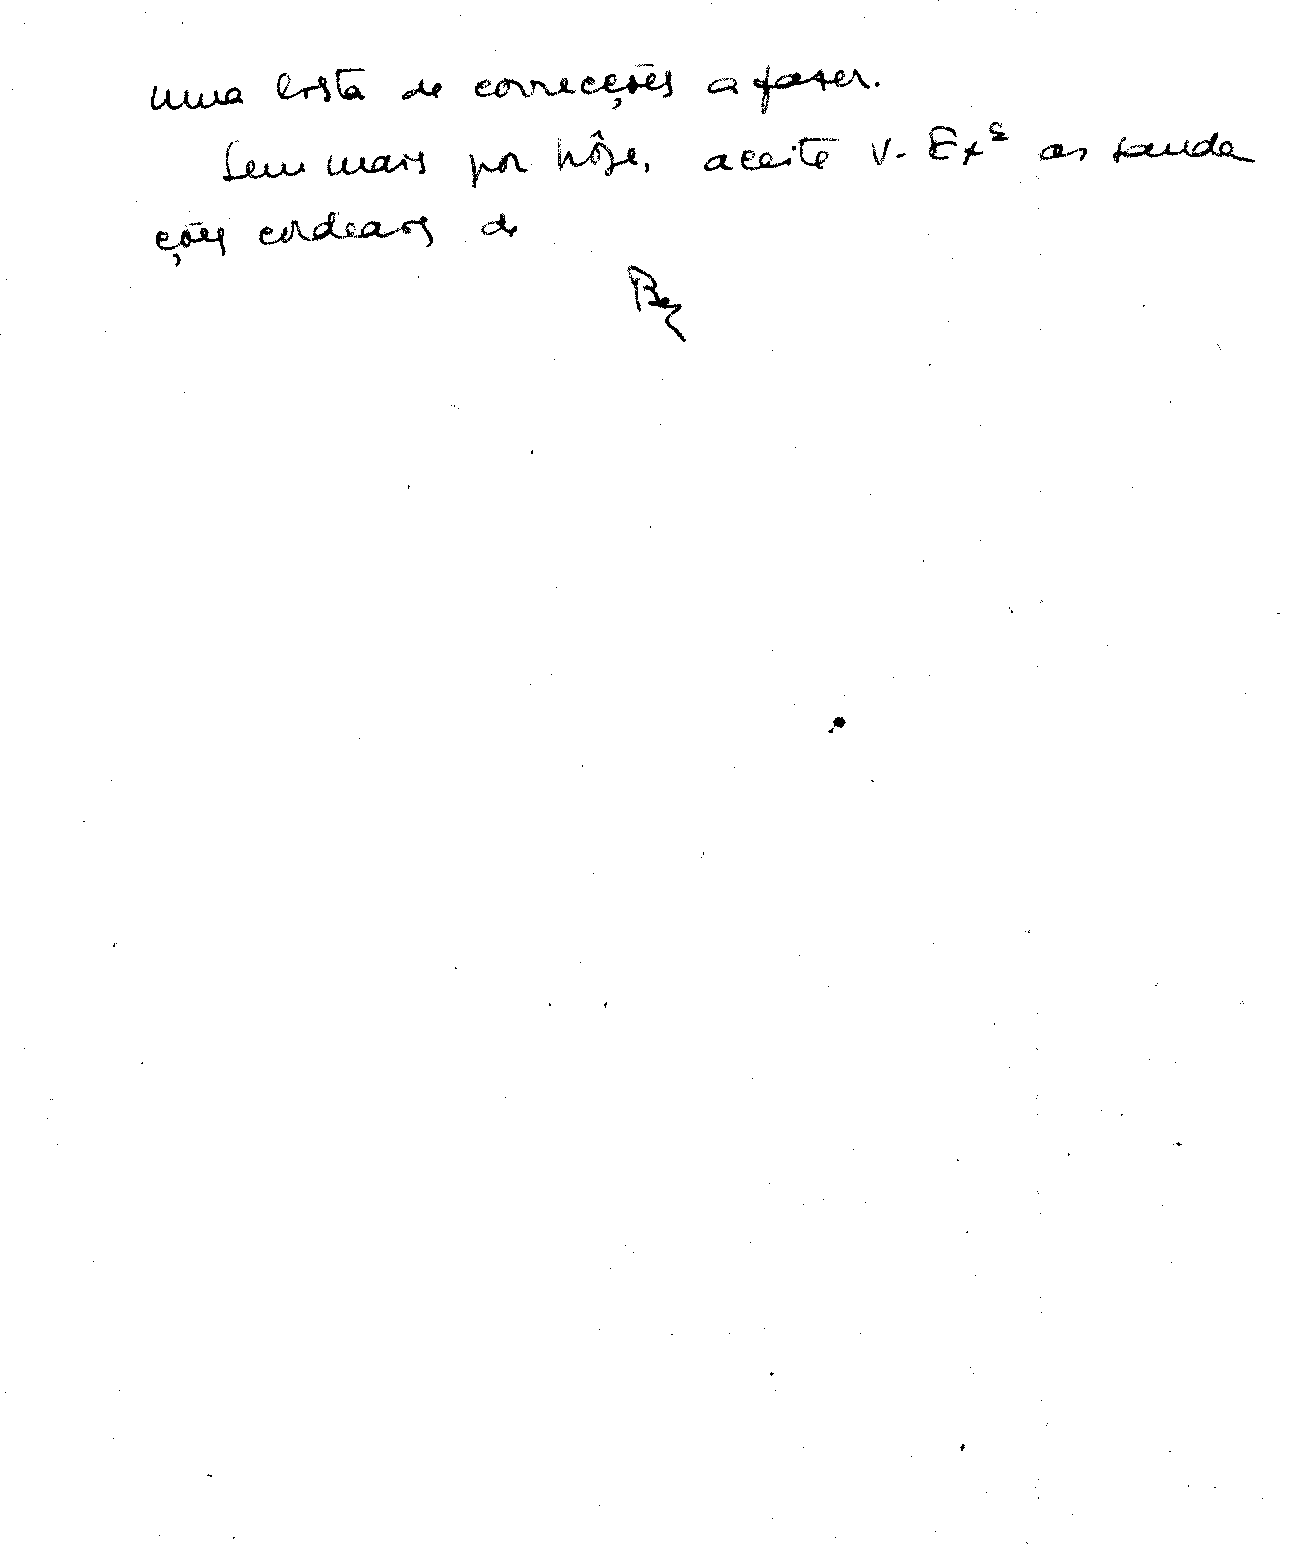 uma lista de correcções a fazer.
Sem mais por hôje, aceite V. Exª as sauda
ções cordeais de